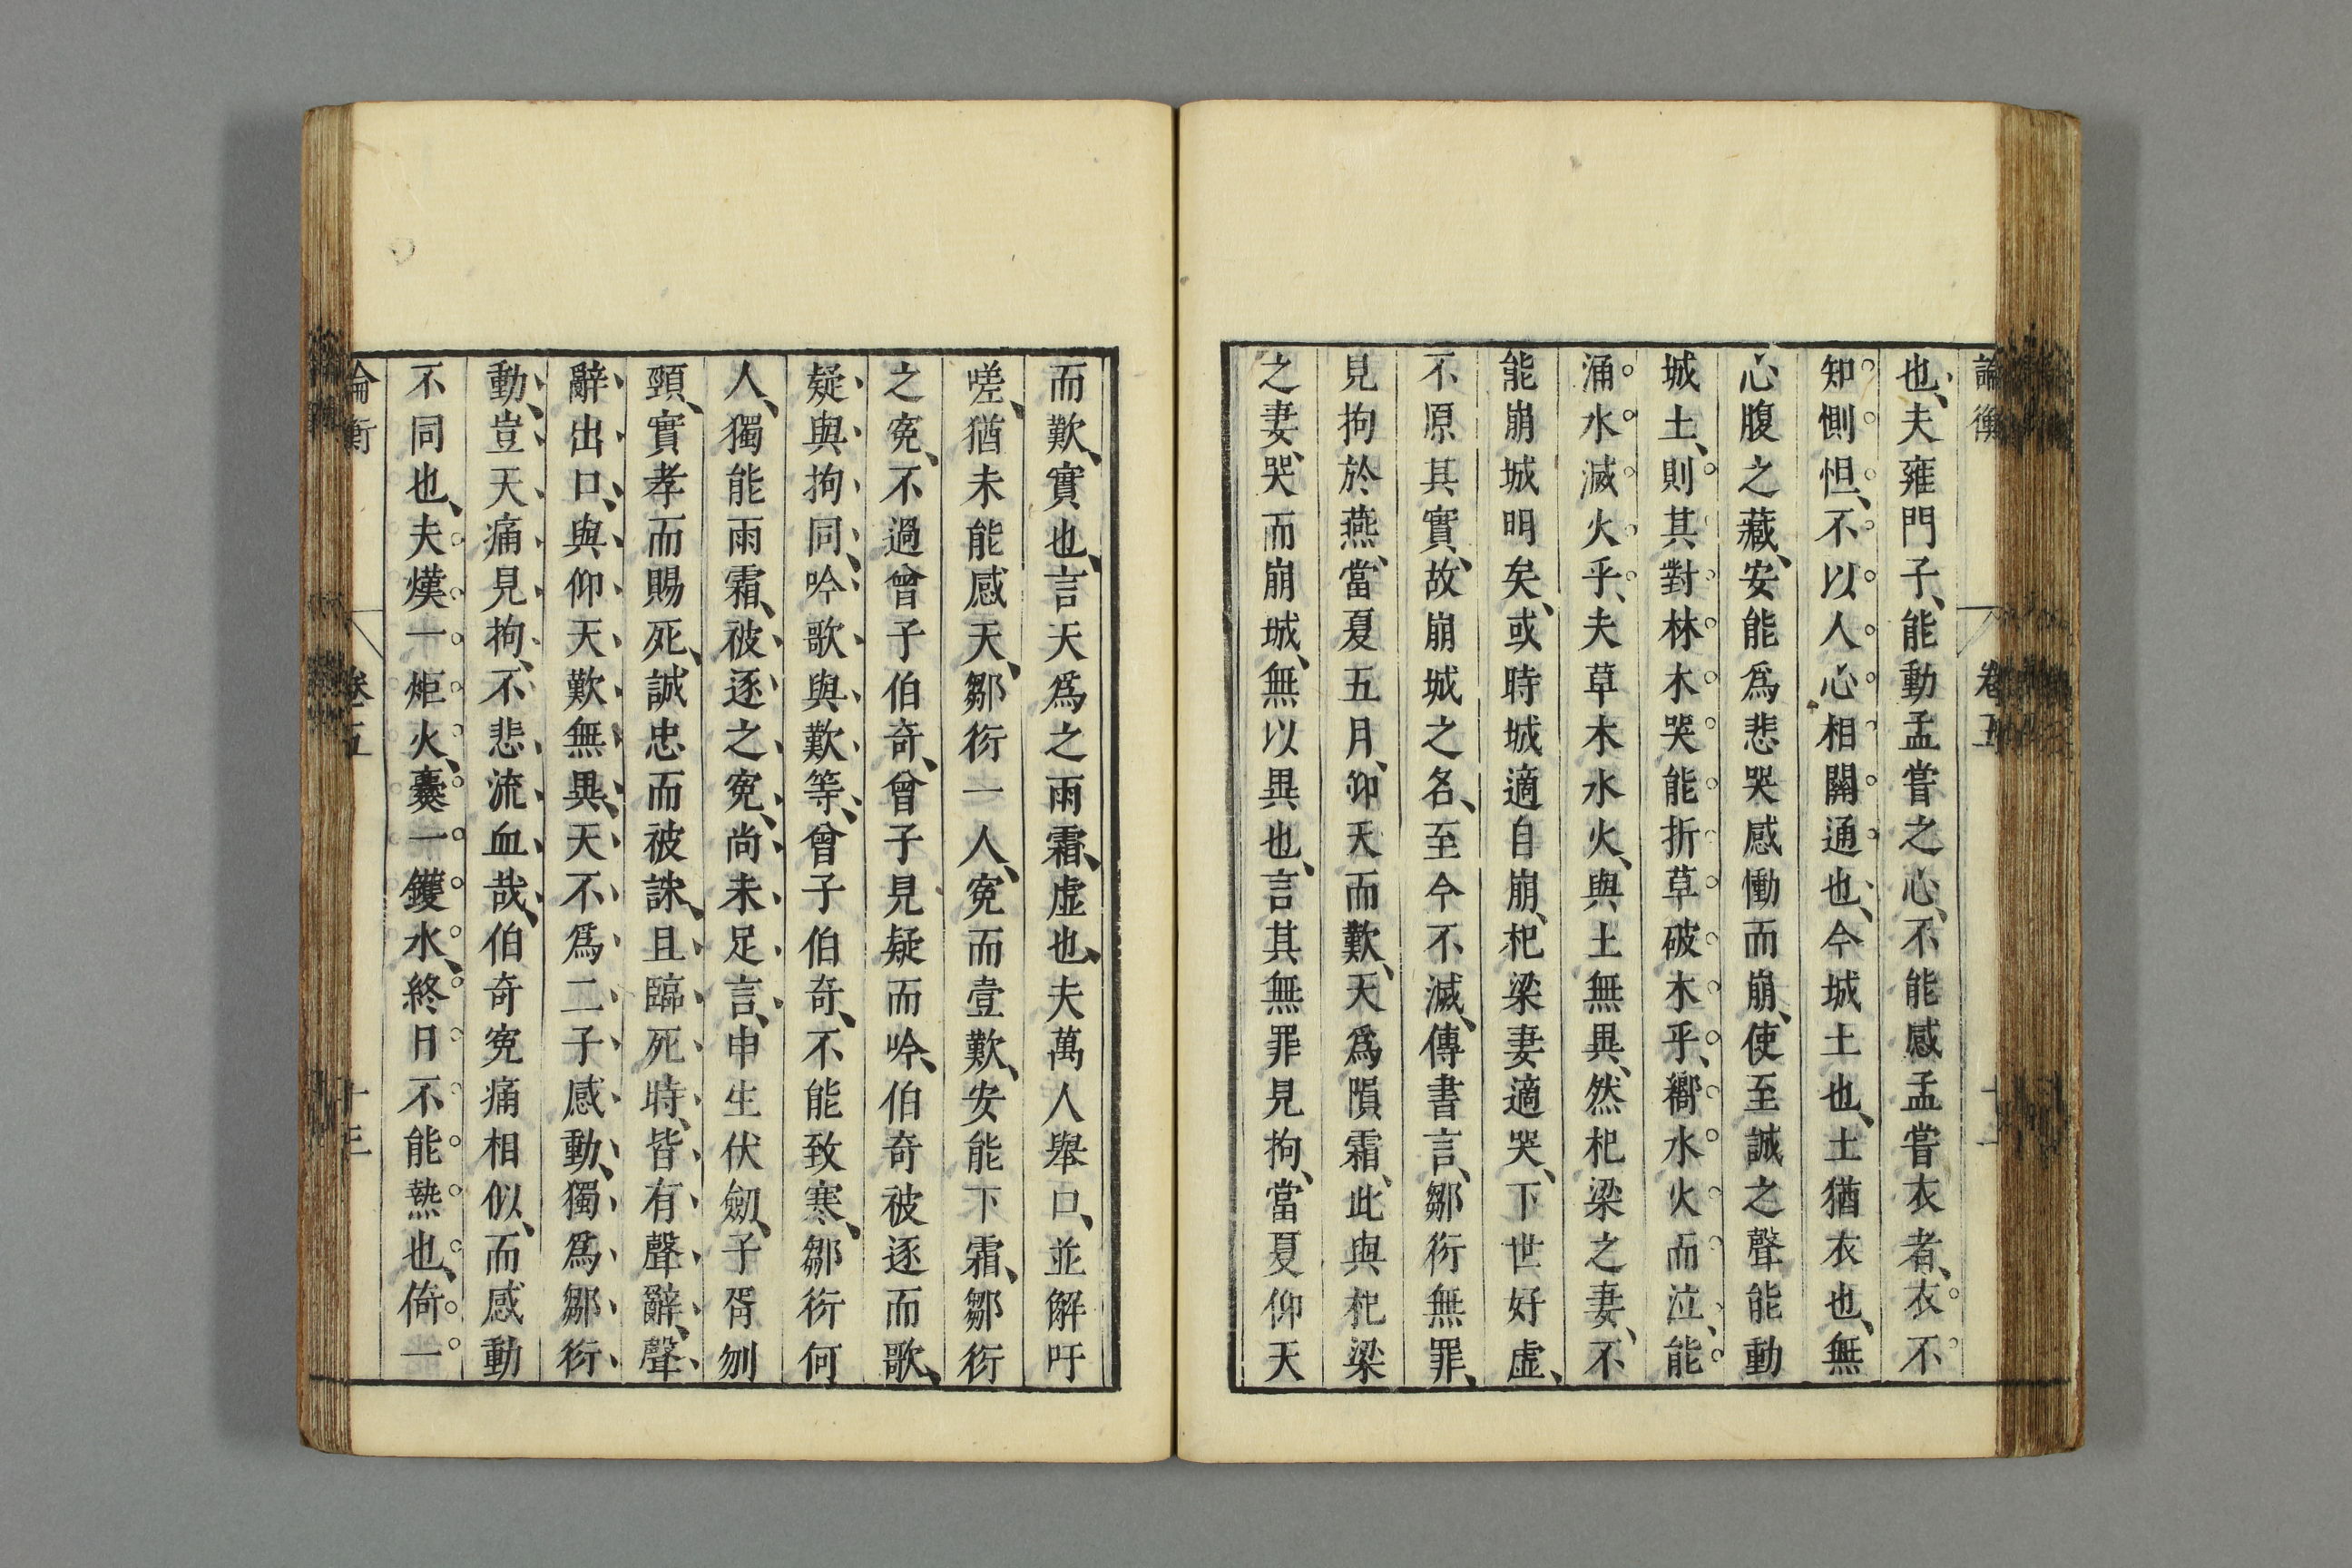 論衡 卷五 十二
也、夫雍門子、能動孟嘗之心、不能感孟嘗衣者、衣不
知惻怛、不以人心相關通也、今城土也、土猶衣也、無
心腹之藏、安能爲悲哭感慟而崩、使至誠之聲能動
城土、則其對林木哭能折草破木乎、嚮水火而泣、能
涌水滅火乎、夫草木水火、與土無異、然杞梁之妻、不
能崩城明矣、或時城適自崩、杞梁妻適哭、下世好虛、
不原其實、故崩城之名、至今不滅、傳書言、鄒衍無罪、
見拘於燕、當夏五月、仰天而歎、天爲隕霜、此與杞梁
之妻、哭而崩城、無以異也、言其無罪見拘、當夏仰天
而歎、實也、言天爲之雨霜、虛也、夫萬人舉口、並解吁
嗟、猶未能感天、鄒衍一人、冤而壹歎、安能下霜、鄒衍
之冤、不過曾子伯奇、曾子見疑而吟、伯奇被逐而歌、
疑與拘同、吟歌與歎等、曾子伯奇、不能致寒、鄒衍何
人、獨能雨霜、被逐之冤、尚未足言、申生伏劒、子胥刎
頸、實孝而賜死、誠忠而被誅、且臨死時、皆有聲辭、聲
辭出口、與仰天歎無異、天不爲二子感動、獨爲鄒衍
動、豈天痛見拘、不悲流血哉、伯奇冤痛相似、而感動
不同也、夫熯一炬火、爨一鑊水、終日不能熱也、倚一
論衡 卷五 十三